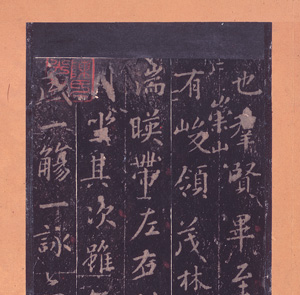 也羣賢畢至
有崇山峻領茂林
湍暎帶左右
坐其次雖
盛一觴一詠